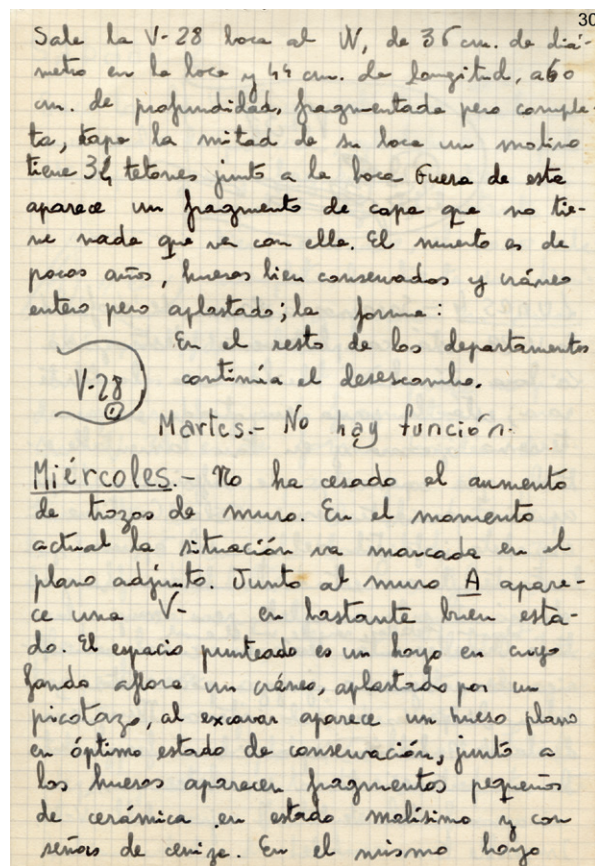 30
Sale la V-28 boca al W, de 36 cm. de diá-
metro en la boca y 44 cm. de longitud, a 60
cm. de profundidad, fragmentada pero comple-
ta, tapa la mitad de su boca un molino
tiene 34 tetones junto a la boca Fuera de esta
aparece un fragmento de copa que no tie-
ne nada que ver con ella. El muerto es de
pocos años, huesos bien conservados y cráneo
entero pero aplastado; la forma:
En el resto de los departamentos
V-28
continúa el desescombro.
Martes.- No hay función.
Miércoles.- No ha cesado el aumento
de trozos de muro. En el momento
actual la situación va marcada en el
plano adjunto. Junto al muro A apare-
ce una V- en bastante buen esta-
do. El espacio punteado es un hoyo en cuyo
fondo aflora un cráneo, aplastado por un
picotazo, al excavar aparece un hueso plano
en óptimo estado de conservación, junto a
los huesos aparecen fragmentos pequeños
de cerámica en estado malísimo y con
señas de ceniza. En el mismo hoyo